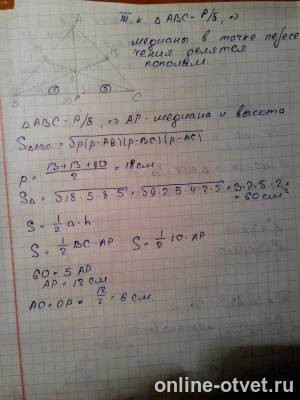 A
Т.к. △ABC - р/б, =>
медианы в точке пересе
чения делятся
пополам.
B
P
C
△ABC - р/б, => AP - медиана и высота
S△ABC = √p(p-AB)(p-BC)(p-AC)
p = (13+13+10)/2 = 18 см
S△ = √18·5·8·5 = √9·2·5·4·2·5 = 3·2·5·2 =
= 60 см²
S = 1/2 a·h
S = 1/2 BC·AP S = 1/2 10·AP
60 = 5 AP
AP = 12 см.
AO = OP = 12/2 = 6 см.
online-otvet.ru